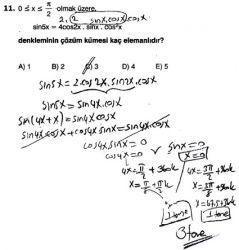 11. 0 ≤ x ≤ π/2 olmak üzere,
2. (2 sinx.cosx).cosx
sin5x = 4cos2x . sinx . cos²x
denkleminin çözüm kümesi kaç elemanlıdır?
A) 1 B) 2 C) 3 D) 4 E) 5
sin5x = 2.cos2x.sin2x.cosx
sin5x = sin4x.cosx
sin(4x+x) = sin4x cosx
sin4x.cosx + cos4x sinx = sin4x.cosx
cos4x sinx = 0
sinx = 0
cos4x = 0
x = 0
4x = π/2 + 360k
4x = 3π/2 + 360k
1 tane
1 tane
3 tane